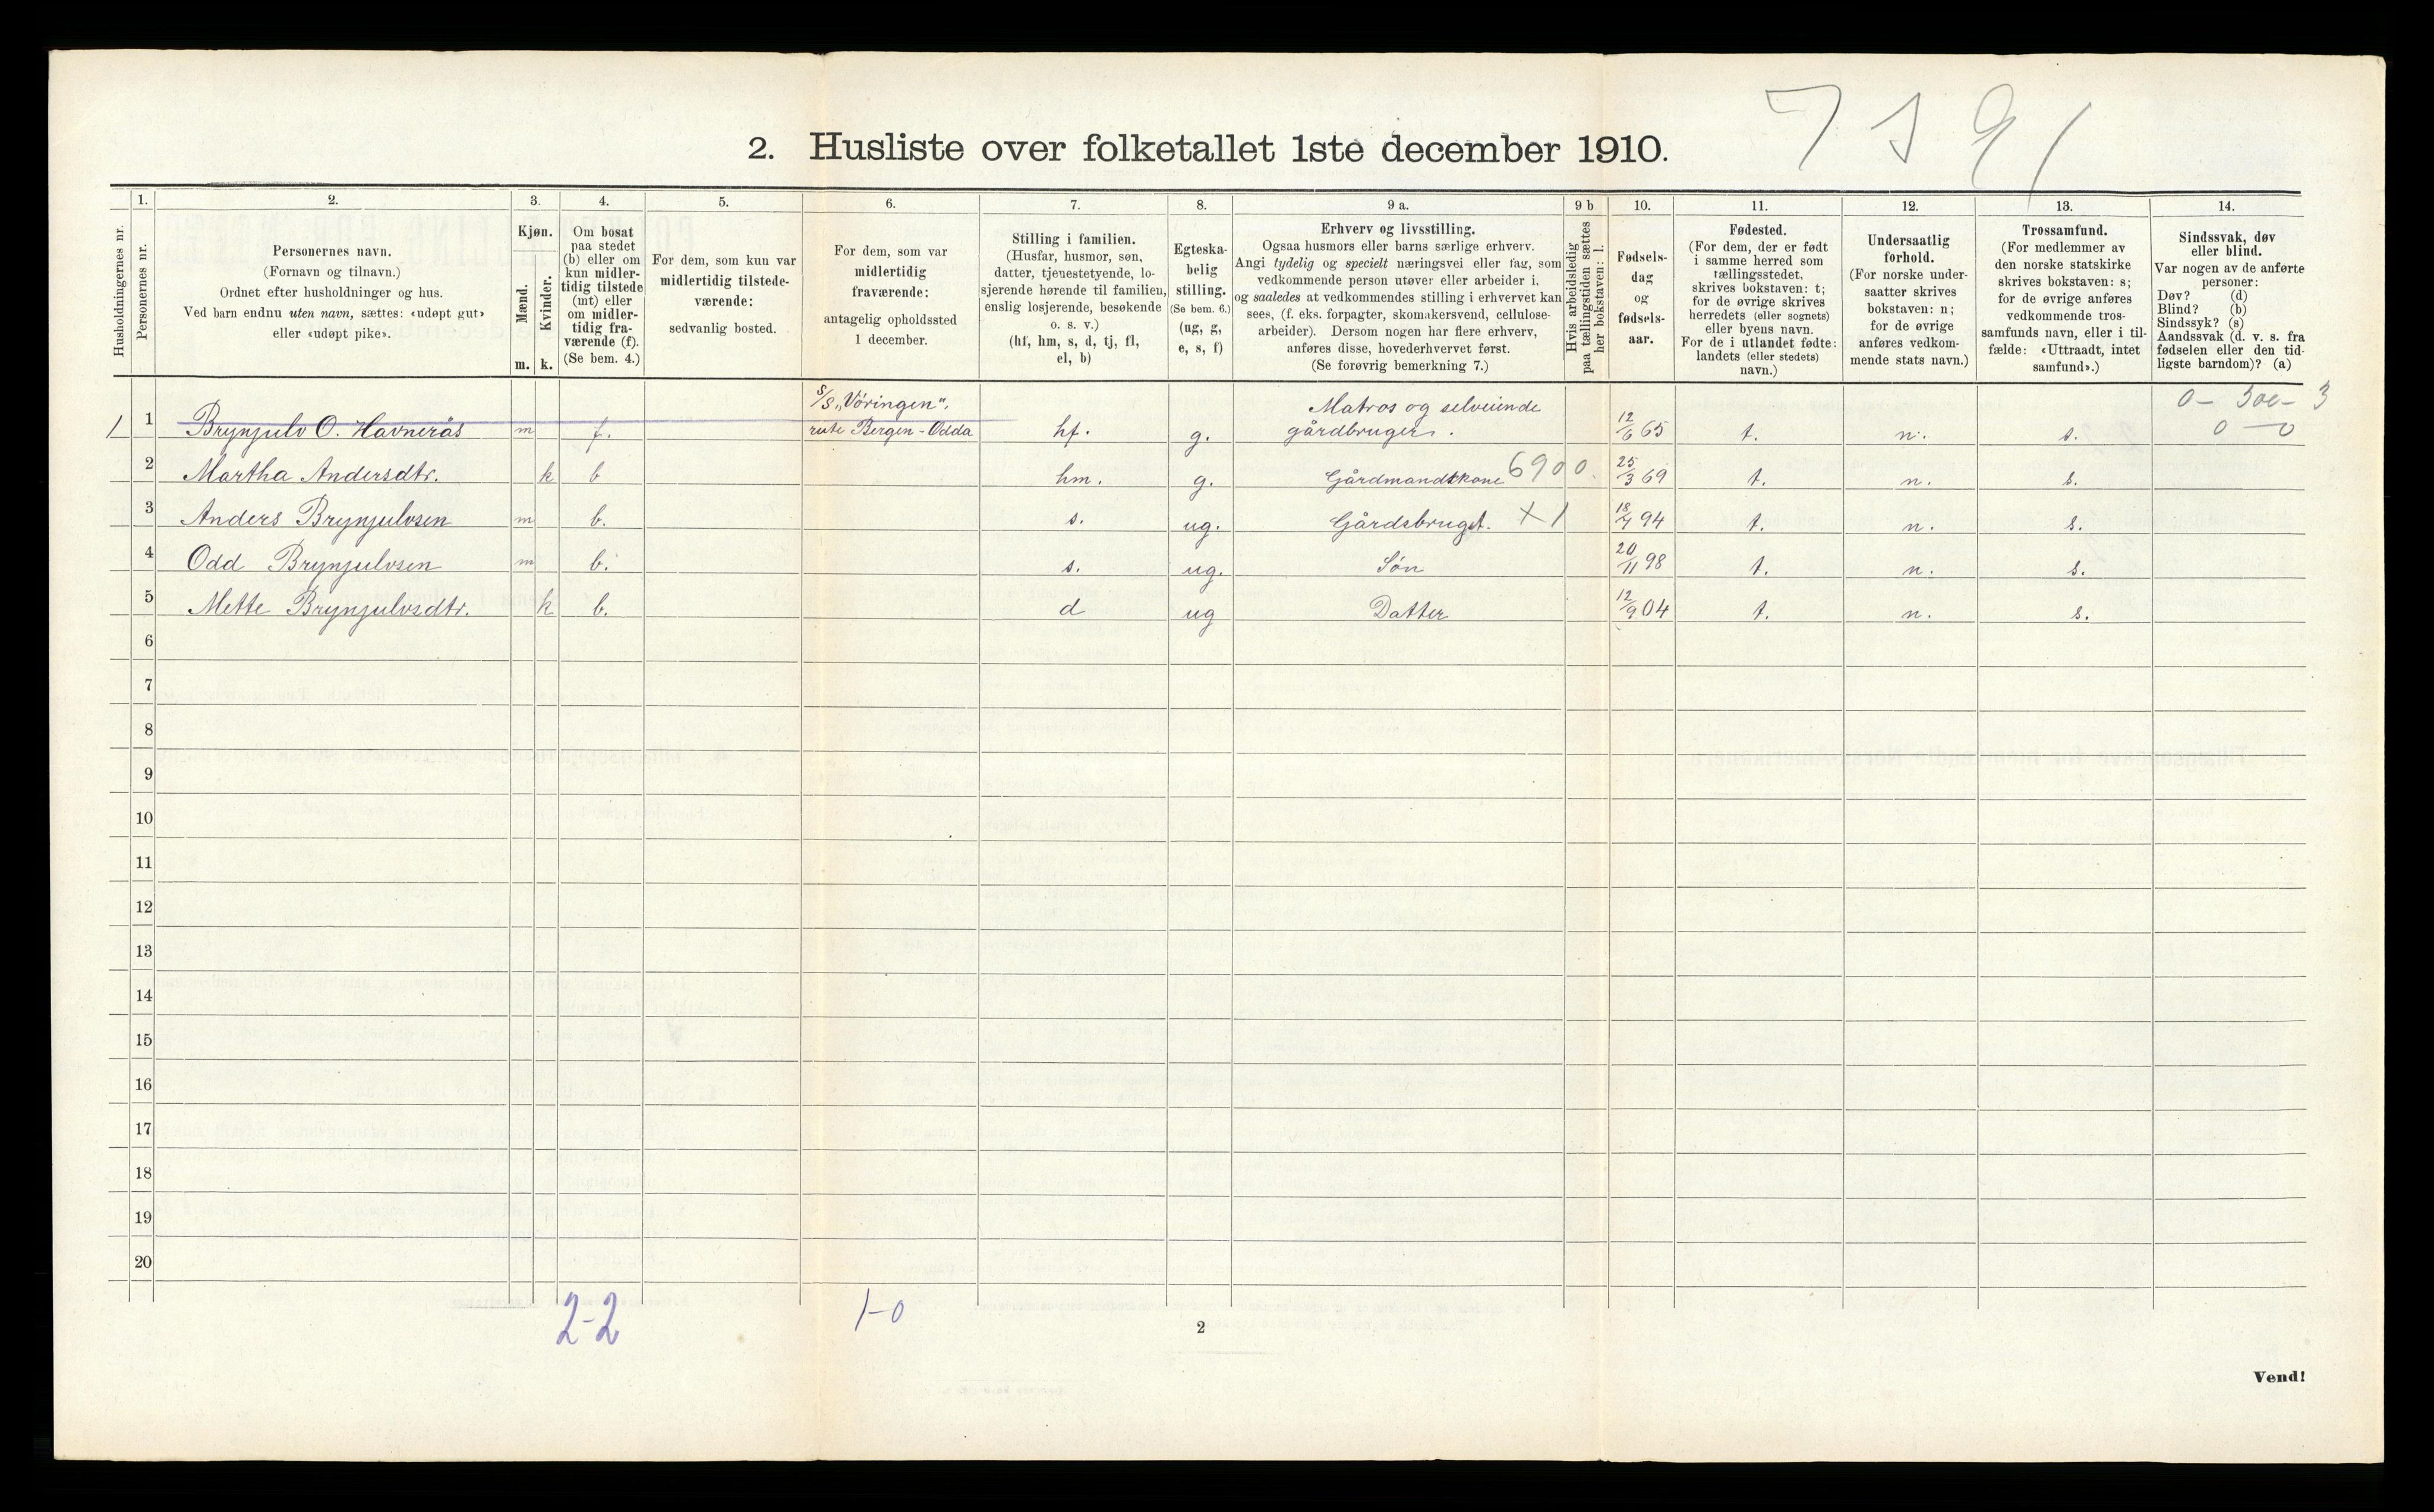 2. Husliste over folketallet 1ste december 1910.
Husholdningernes nr.
1.
Personernes nr.
2.
Personernes navn.
(Fornavn og tilnavn.)
Ordnet efter husholdninger og hus.
Ved barn endnu uten navn, sættes: «udøpt gut»
eller «udøpt pike».
3.
Kjøn.
Mænd.
Kvinder.
m. k.
4.
Om bosat
paa stedet
(b) eller om
kun midler-
tidig tilstede
(mt) eller
om midler-
tidig fra-
værende (f).
(Se bem. 4.)
5.
For dem, som kun var
midlertidig tilstede-
værende:
sedvanlig bosted.
6.
For dem, som var
midlertidig
fraværende:
antagelig opholdssted
1 december.
7.
Stilling i familien.
(Husfar, husmor, søn,
datter, tjenestetyende, lo-
sjerende hørende til familien,
enslig losjerende, besøkende
o. s. v.)
(hf, hm, s, d, tj, fl,
el, b)
8.
Egteska-
belig
stilling.
(Se bem. 6.)
(ug, g,
e, s, f)
9 a.
Erhverv og livsstilling.
Ogsaa husmors eller barns særlige erhverv.
Angi tydelig og specielt næringsvei eller fag, som
vedkommende person utøver eller arbeider i,
og saaledes at vedkommendes stilling i erhvervet kan
sees, (f. eks. forpagter, skomakersvend, cellulose-
arbeider). Dersom nogen har flere erhverv,
anføres disse, hovederhvervet først.
(Se forøvrig bemerkning 7.)
9 b
Hvis arbeidsledig
paa tællingstiden sættes
her bokstaven: l.
10.
Fødsels-
dag
og
fødsels-
aar.
11.
Fødested.
(For dem, der er født
i samme herred som
tællingsstedet,
skrives bokstaven: t;
for de øvrige skrives
herredets (eller sognets)
eller byens navn.
For de i utlandet fødte:
landets (eller stedets)
navn.)
12.
Undersaatlig
forhold.
(For norske under-
saatter skrives
bokstaven: n;
for de øvrige
anføres vedkom-
mende stats navn.)
13.
Trossamfund.
(For medlemmer av
den norske statskirke
skrives bokstaven: s;
for de øvrige anføres
vedkommende tros-
samfunds navn, eller i til-
fælde: «Uttraadt, intet
samfund».)
14.
Sindssvak, døv
eller blind.
Var nogen av de anførte
personer:
Døv? (d)
Blind? (b)
Sindssyk? (s)
Aandssvak (d. v. s. fra
fødselen eller den tid-
ligste barndom)? (a)
S/S „Vöringen". Matros og selveiende
1 1 Brynjulv O. Havnerås m f. rute Bergen-Odda hf. g. gårdbruger. 12/6 65 t. n. s. 0 — 0
2 Martha Andersdtr. k b hm. g. Gårdmandskone 6900. 25/3 69 t. n. s.
3 Anders Brynjulvsen m b. s. ug. Gårdsbruget. X 1 94 t. n. s.
4 Odd Brynjulvsen m b. s. ug. Søn 20/11 98 t. n. s.
5 Mette Brynjulvsdtr. k b. d ug Datter 12/9 04 t. n. s.
6
7
8
9
10
11
12
13
14
15
16
17
18
19
20
2-2 1-0
2
Vend!